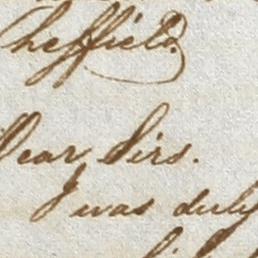 Sheffield.
Dear Sirs.
I was duly